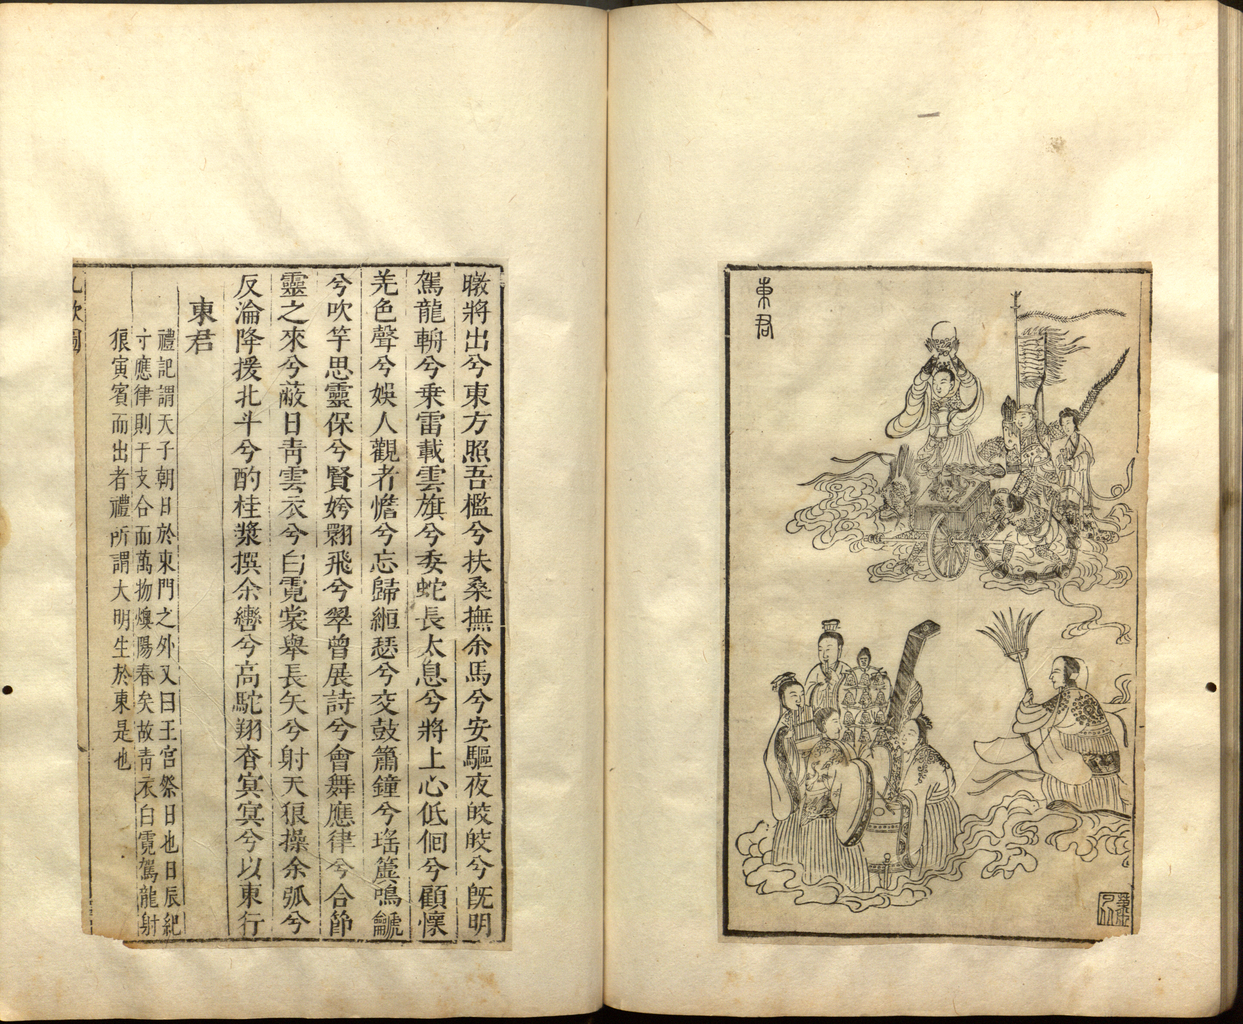 東君
暾將出兮東方照吾檻兮扶桑撫余馬兮安驅夜皎皎兮旣明
駕龍輈兮乗雷載雲旗兮委蛇長太息兮將上心低佪兮顧懷
羌色聲兮娛人觀者憺兮忘歸緪瑟兮交鼓簫鐘兮瑤簴鳴䶵
兮吹竽思靈保兮賢姱翾飛兮翠曾展詩兮會舞應律兮合節
靈之來兮蔽日青雲衣兮白霓裳舉長矢兮射天狼操余弧兮
反淪降援北斗兮酌桂漿撰余轡兮高駝翔杳冥冥兮以東行
東君
禮記謂天子朝日於東門之外又曰王宮祭日也日辰紀
于應律則干支合而萬物燠陽春矣故青衣白霓駕龍射
狼寅賓而出者禮所謂大明生於東是也
九歌圖